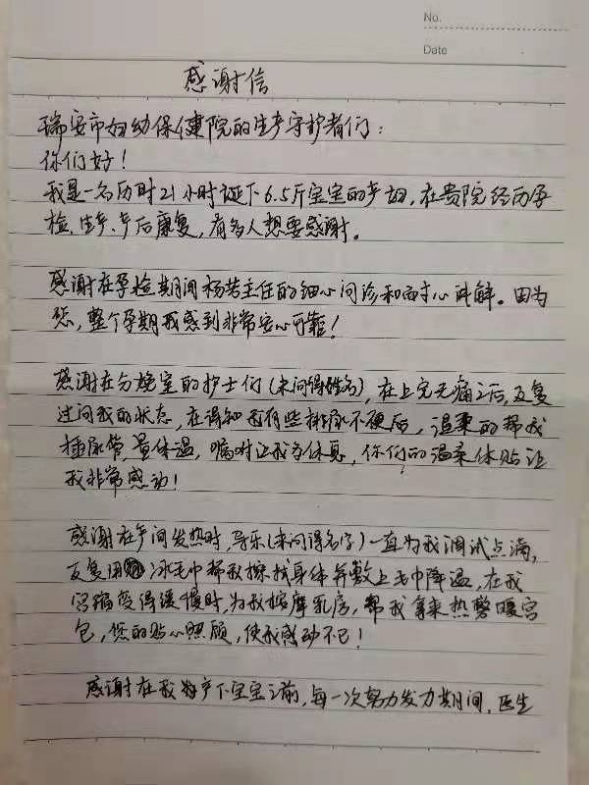 No.
Date
感谢信
瑞安市妇幼保健院的生产守护者们：
你们好！
我是一名历时21小时诞下6.5斤宝宝的产妇，在贵院经历孕
检、生产、产后康复，有多人想要感谢。
感谢在孕检期间杨芳主任的细心问诊和耐心讲解。因为
您，整个孕期我感到非常安心可靠！
感谢在分娩室的护士们（未问得姓名），在上完无痛之后，反复
过问我的状态，在得知我有些排尿不便后，温柔的帮我
插尿管，量体温，嘱咐让我多休息，你们的温柔体贴让
我非常感动！
感谢在产间发热时，导乐（未问得名字）一直为我调试点滴，
反复用冰毛巾帮我擦拭身体并敷上毛巾降温，在我
宫缩变得缓慢时，为我按摩乳房，帮我拿来热敷暖宫
包，您的贴心照顾，使我感动不已！
感谢在我将产下宝宝之前，每一次努力发力期间，医生